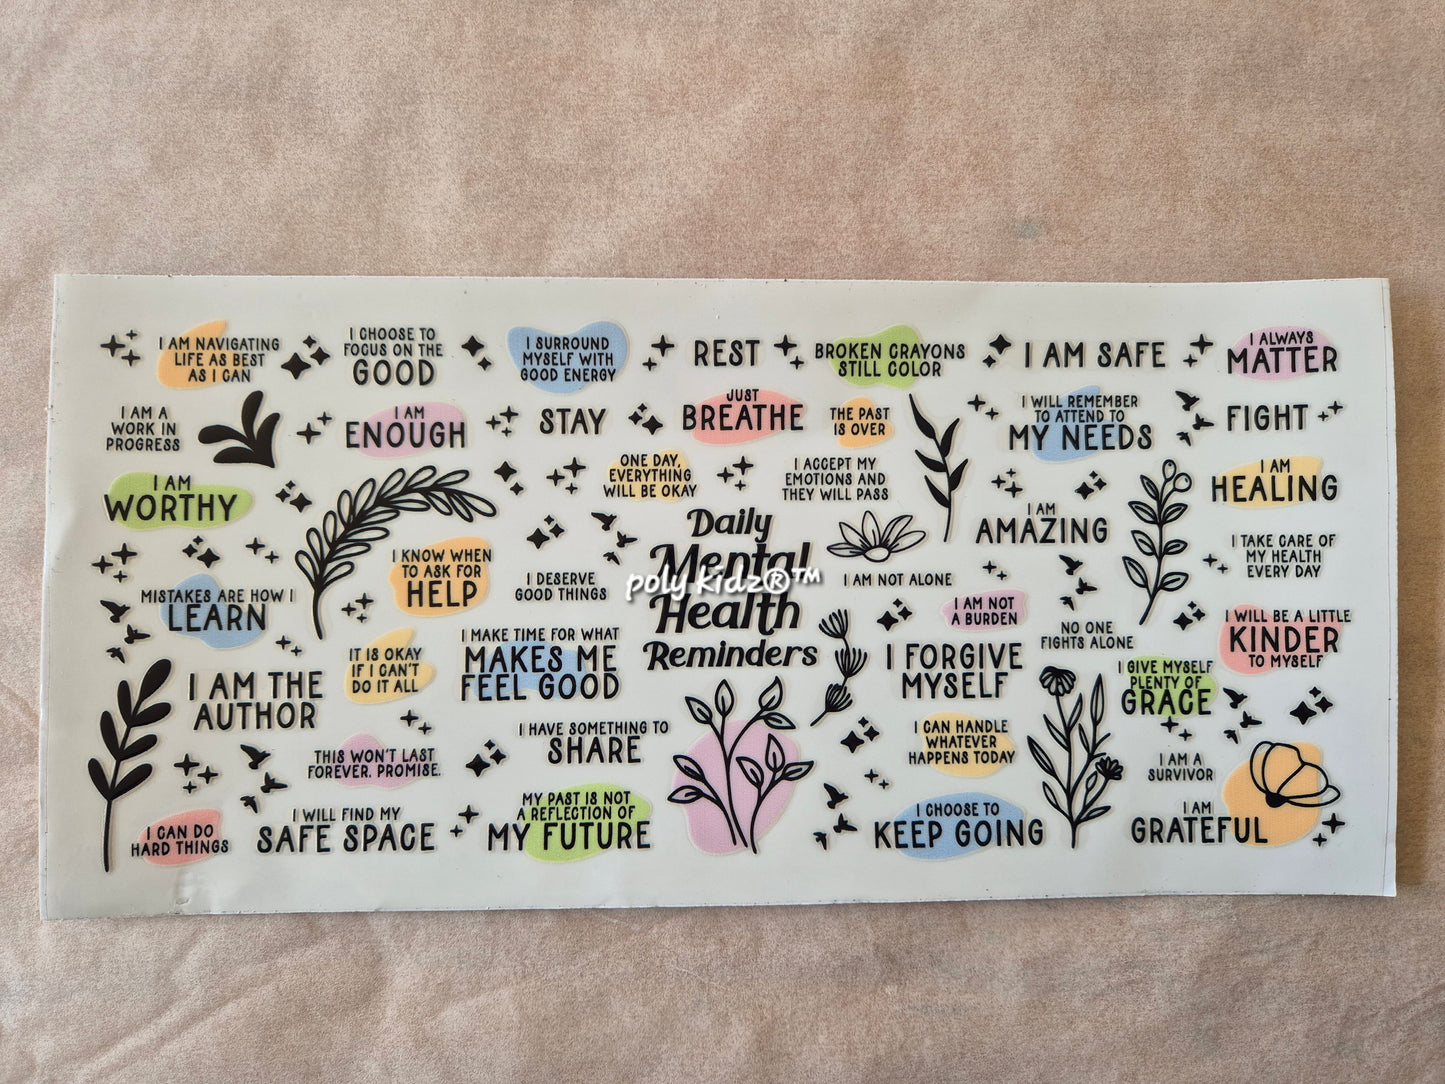 I AM NAVIGATING
LIFE AS BEST
AS I CAN
I CHOOSE TO
FOCUS ON THE
GOOD
I SURROUND
MYSELF WITH
GOOD ENERGY
REST
BROKEN CRAYONS
STILL COLOR
I AM SAFE
I ALWAYS
MATTER
I AM A
WORK IN
PROGRESS
I AM
ENOUGH
STAY
JUST
BREATHE
THE PAST
IS OVER
I WILL REMEMBER
TO ATTEND TO
MY NEEDS
FIGHT
I AM
WORTHY
ONE DAY,
EVERYTHING
WILL BE OKAY
I ACCEPT MY
EMOTIONS AND
THEY WILL PASS
I AM
AMAZING
I AM
HEALING
MISTAKES ARE HOW I
LEARN
I KNOW WHEN
TO ASK FOR
HELP
I DESERVE
GOOD THINGS
Daily
Mental
poly Kidz®™
Health
Reminders
I AM NOT ALONE
I AM NOT
A BURDEN
I TAKE CARE OF
MY HEALTH
EVERY DAY
I AM THE
AUTHOR
IT IS OKAY
IF I CAN'T
DO IT ALL
I MAKE TIME FOR WHAT
MAKES ME
FEEL GOOD
I FORGIVE
MYSELF
NO ONE
FIGHTS ALONE
I WILL BE A LITTLE
KINDER
TO MYSELF
I GIVE MYSELF
PLENTY OF
GRACE
THIS WON'T LAST
FOREVER. PROMISE.
I HAVE SOMETHING TO
SHARE
I CAN HANDLE
WHATEVER
HAPPENS TODAY
I AM A
SURVIVOR
I CAN DO
HARD THINGS
I WILL FIND MY
SAFE SPACE
MY PAST IS NOT
A REFLECTION OF
MY FUTURE
I CHOOSE TO
KEEP GOING
I AM
GRATEFUL